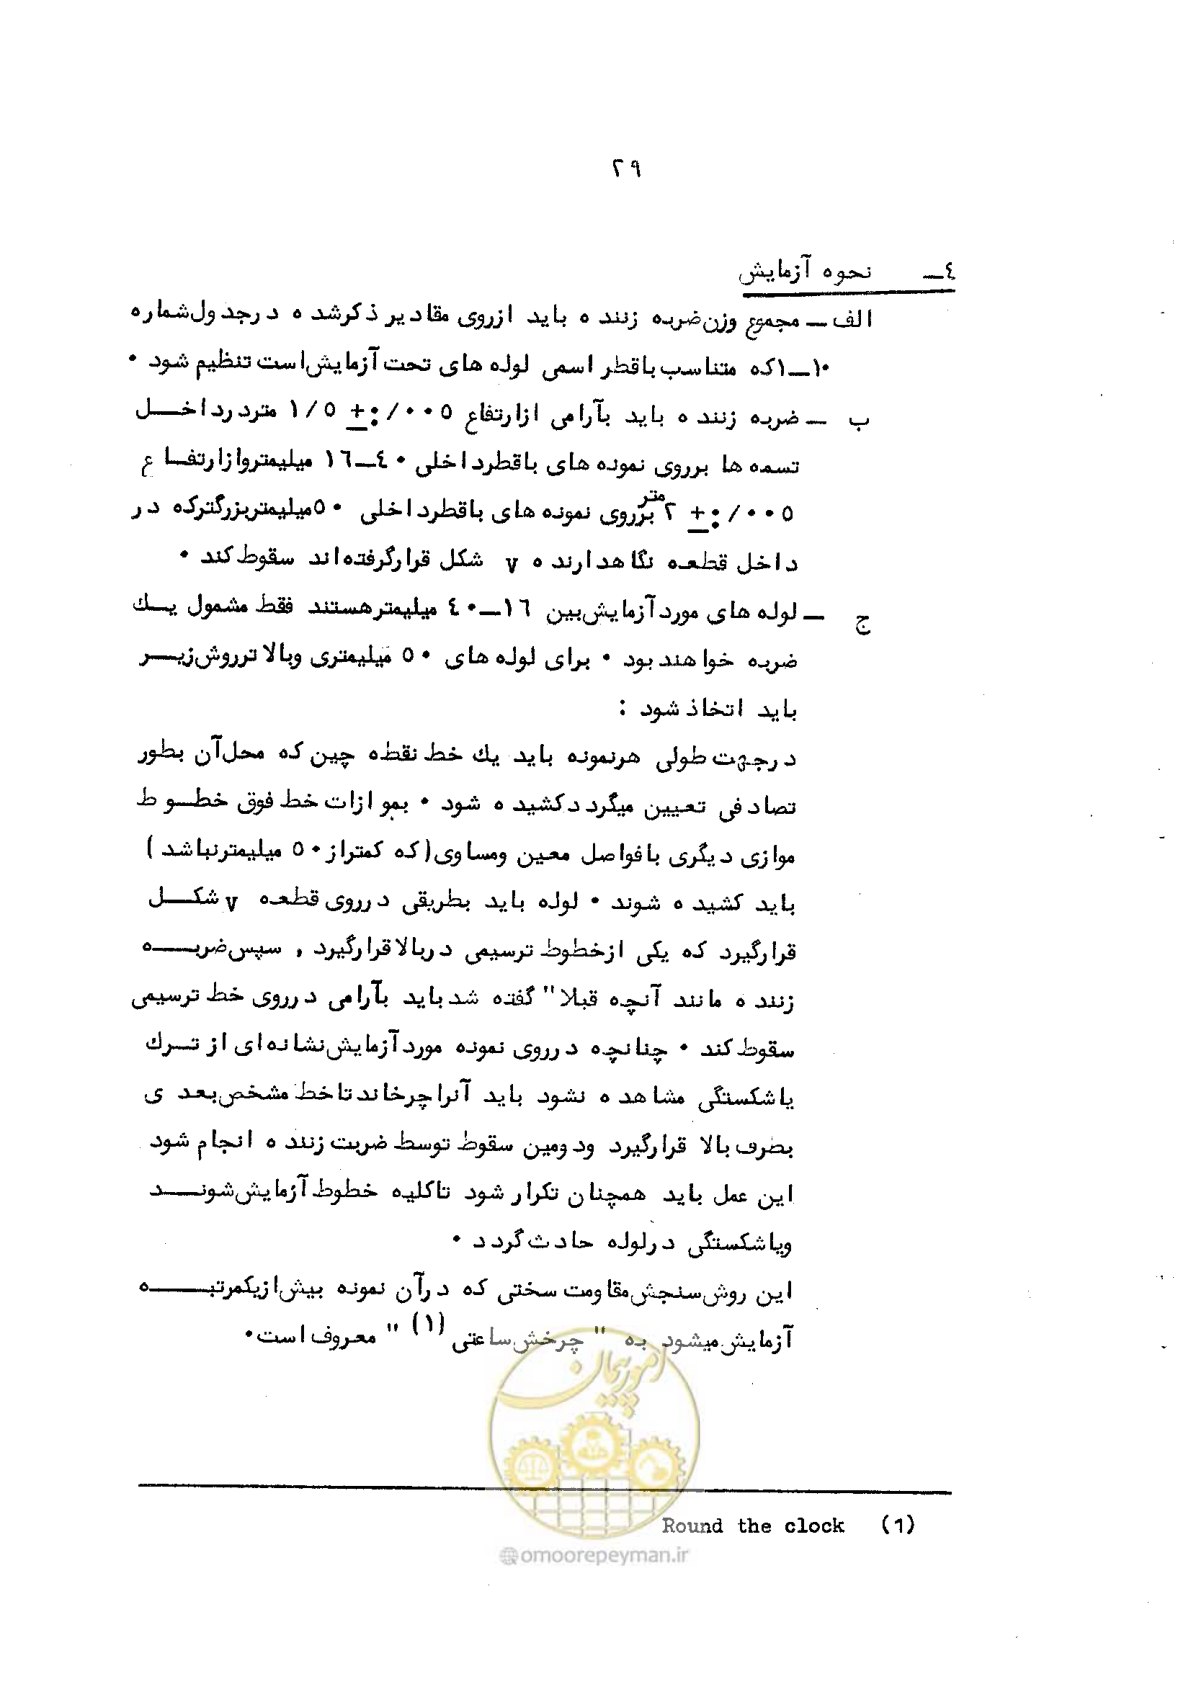 ۲۹
٤ــ نحوه آزمایش
الف ــ مجموع وزن ضربه زننده باید ازروی مقادیر ذکرشده درجدول شماره
۱۰ــ۱که متناسب باقطر اسمی لوله های تحت آزمایش است تنظیم شود ۰
ب ــ ضربه زننده باید بآرامی ازارتفاع ۰/۰۰۵ ± ۱/۵ متردرداخــل
تسمه ها برروی نمونه های باقطرداخلی ۴۰ــ۱۶ میلیمتروازارتفــاع
۰/۰۰۵ ± ۲ متر برروی نمونه های باقطرداخلی ۵۰میلیمتربزرگترکه در
داخل قطعه نگاهدارنده v شکل قرارگرفته اند سقوط کند ۰
ج ــ لوله های مورد آزمایش بین ۱۶ــ۴۰ میلیمترهستند فقط مشمول یــك
ضربه خواهند بود ۰ برای لوله های ۵۰ میلیمتری وبالاترروش زیــر
باید اتخاذ شود :
درجهت طولی هرنمونه باید یك خط نقطه چین که محل آن بطور
تصادفی تعیین میگردد کشیده شود ۰ بموازات خط فوق خطــوط
موازی دیگری بافواصل معین ومساوی(که کمتراز ۵۰ میلیمترنباشد)
باید کشیده شوند ۰ لوله باید بطریقی درروی قطعه v شکــل
قرارگیرد که یکی ازخطوط ترسیمی دربالاقرارگیرد , سپس ضربــه
زننده مانند آنچه قبلا" گفته شد باید بآرامی درروی خط ترسیمی
سقوط کند ۰ چنانچه درروی نمونه مورد آزمایش نشانه ای از تــرك
یاشکستگی مشاهده نشود باید آنرا چرخاند تاخط مشخص بعدی
بطرف بالا قرارگیرد ودومین سقوط توسط ضربت زننده انجام شود
این عمل باید همچنان تکرار شود تاکلیه خطوط آزمایش شونــد
ویاشکستگی درلوله حادث گردد ۰
این روش سنجش مقاومت سختی که درآن نمونه بیش ازیکمرتبــه
آزمایش میشود به " چرخش ساعتی (۱) " معروف است ۰
Round the clock (1)
امور پیمان
@omoorepeyman.ir